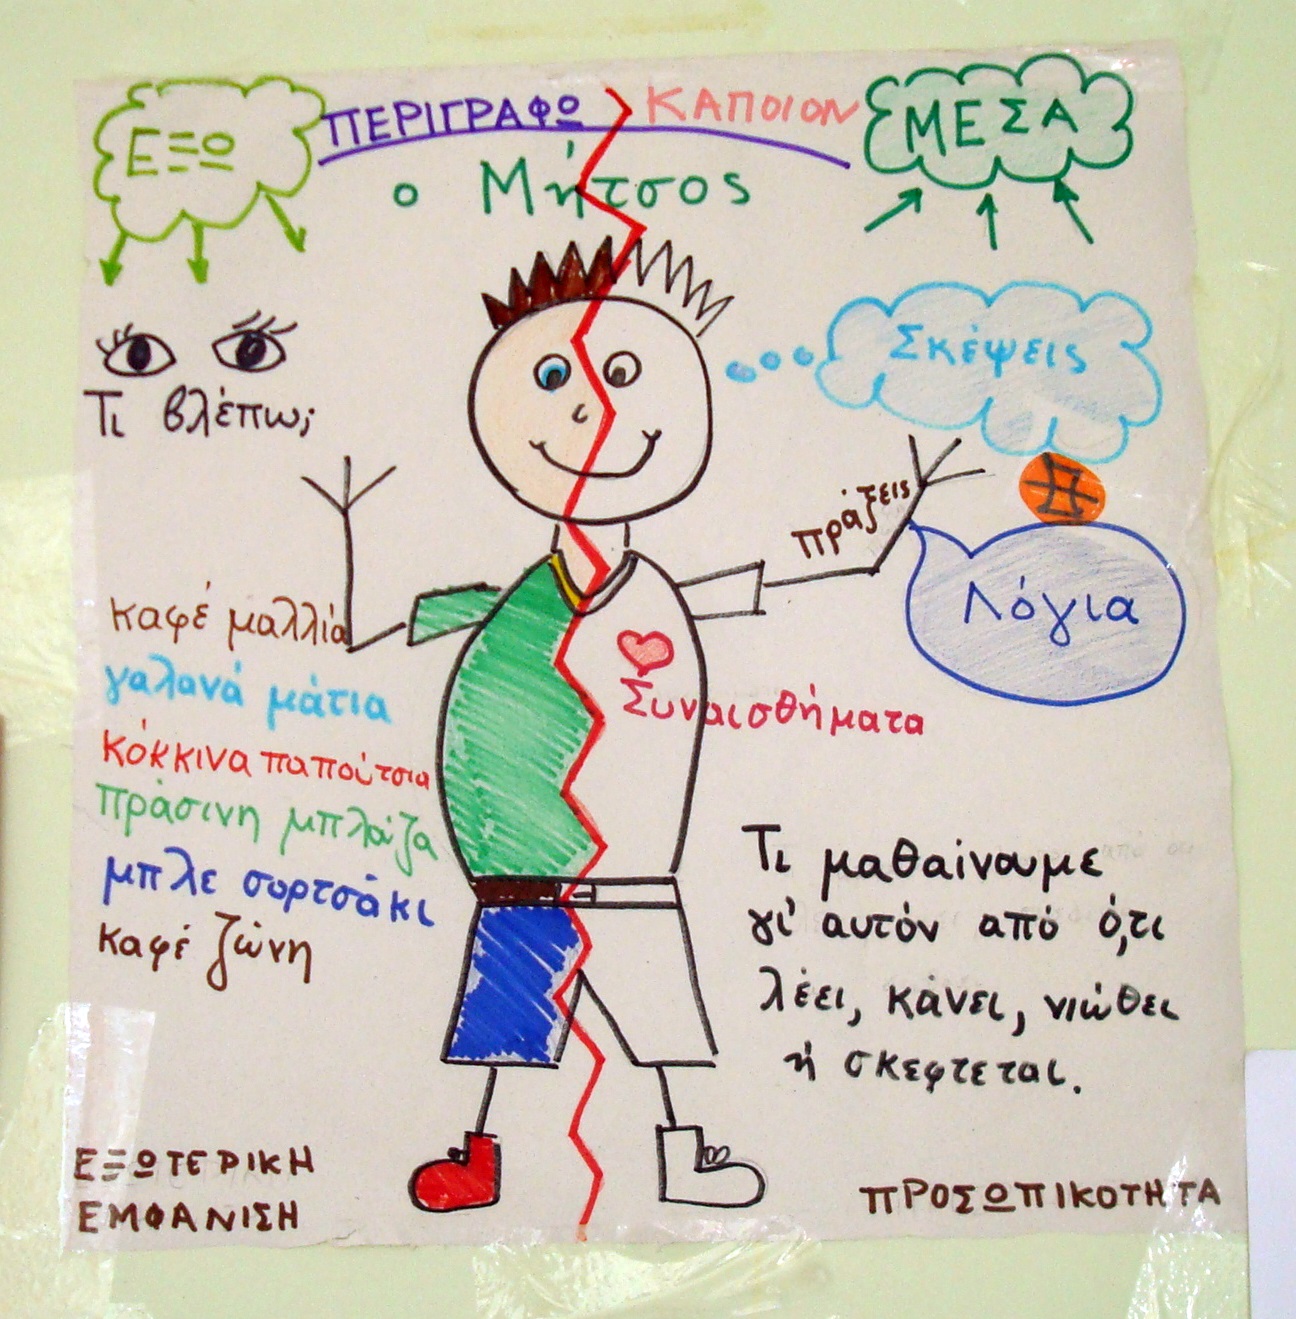 ΕΞΩ
ΠΕΡΙΓΡΑΦΩ ΚΑΠΟΙΟΝ
ΜΕΣΑ
ο Μήτσος
Τι βλέπω;
Σκέψεις
πράξεις
Λόγια
Συναισθήματα
καφέ μαλλιά
γαλανά μάτια
κόκκινα παπούτσια
πράσινη μπλούζα
μπλε σορτσάκι
καφέ ζώνη
Τι μαθαίνουμε
γι' αυτόν από ό,τι
λέει, κάνει, νιώθει
ή σκέφτεται.
ΕΞΩΤΕΡΙΚΗ
ΕΜΦΑΝΙΣΗ
ΠΡΟΣΩΠΙΚΟΤΗΤΑ